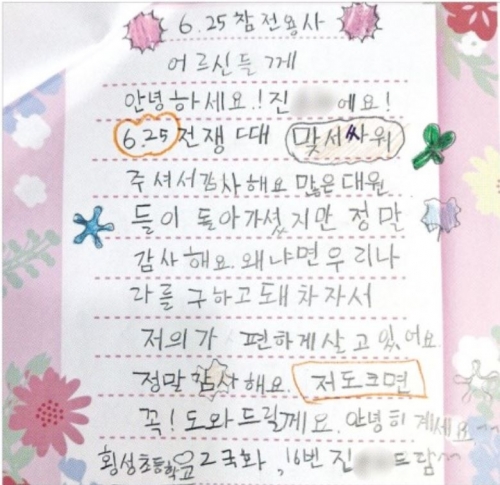 6.25참전용사
어르신들께
안녕하세요.! 진 에요!
6.25전쟁 때 맞서싸워
주셔서감사해요 많은대원
들이 돌아가셨지만 정말
감사해요. 왜냐면우리나
라를 구하고돼차자서
저의가 편하게살고있어요.
정말감사해요. 저도크면
꼭! 도와드릴께요. 안녕히 계세요~~
횡성초등학교2국화, 16번 진 드담~~